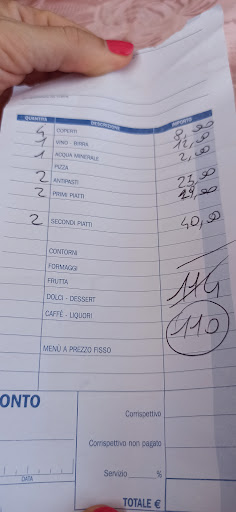 QUANTITÀ DESCRIZIONE IMPORTO
4 COPERTI 8,00
1 VINO - BIRRA 12,00
1 ACQUA MINERALE 2,00
PIZZA
2 ANTIPASTI
2 PRIMI PIATTI
2 SECONDI PIATTI 40,00
CONTORNI
FORMAGGI
FRUTTA 114
DOLCI - DESSERT
CAFFÈ - LIQUORI 110
MENÙ A PREZZO FISSO
ONTO
Corrispettivo
Corrispettivo non pagato
Servizio %
DATA
TOTALE €